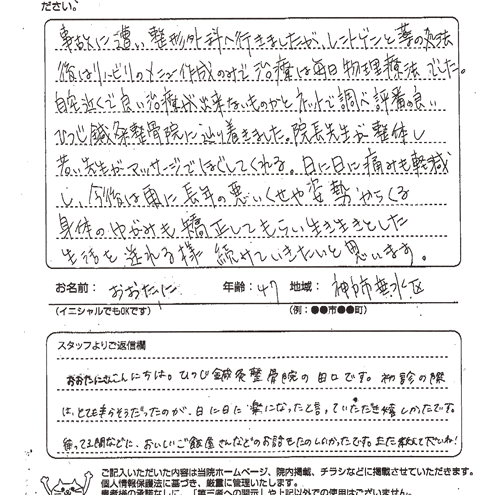 ださい。
事故に遭い整形外科へ行きましたが、レントゲンと薬の処法
後はリハビリのメニュー作成のみで治療は毎日物理療法でした。
自宅近くで良い治療が出来ないものかとネットで調べ評番の良い
ひつじ鍼灸整骨院に辿り着きました。院長先生が整体し
若い先生がマッサージでほぐしてくれる。日に日に痛みも軽減
し、今後は更に長年の悪いくせや姿勢からくる
身体のゆがみも矯正してもらい生き生きとした
生活を送れる様続けていきたいと思います。
お名前： おおたに 年齢：47 地域： 神戸市垂水区
(イニシャルでもOKです) (例：●●市●●町)
スタッフよりご返信欄
おおたにさんこんにちは。ひつじ鍼灸整骨院の田口です。初診の際
は、とても辛そうだったのが、日に日に楽になったと言っていただき嬉しかったです。
待ってる間などに、おいしいご飯屋さんなどのお話をたのしかったです。また教えて下さいね！
ご記入いただいた内容は当院ホームページ、院内掲載、チラシなどに掲載させていただきます。
個人情報保護法に基づき、厳重に管理いたします。
患者様の承諾なしに、「第三者への開示」や上記以外での使用はございません。